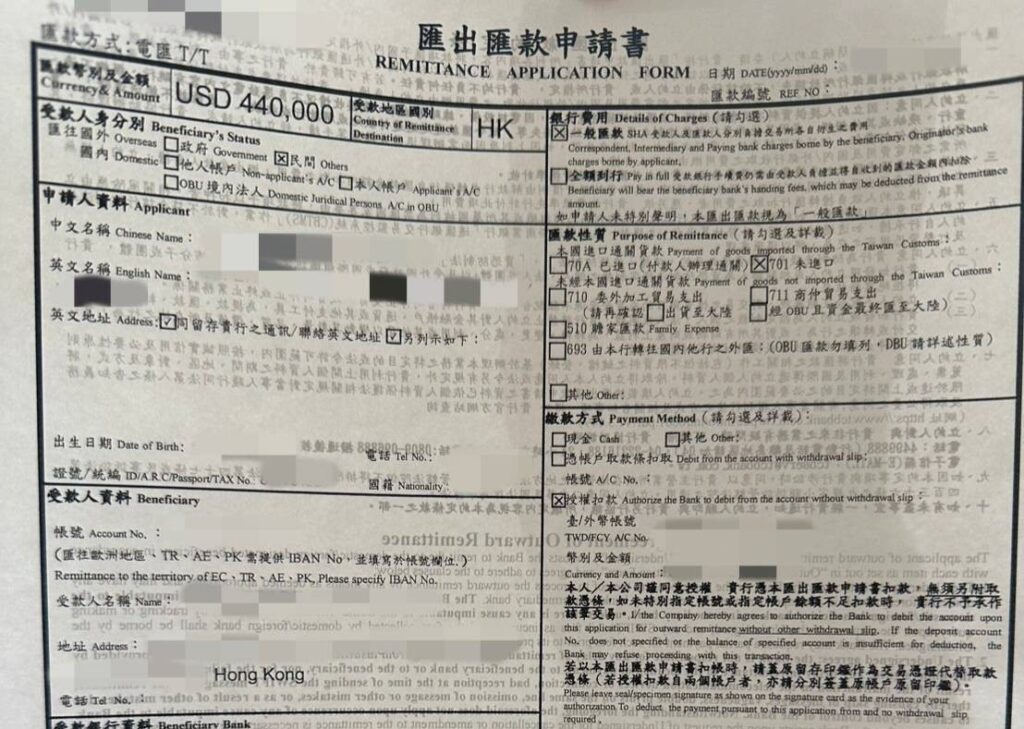 匯出匯款申請書
匯款方式:電匯 T/T
REMITTANCE APPLICATION FORM
日期 DATE(yyyy/mm/dd):
匯款編號 REF NO:
匯款幣別及金額
Currency & Amount
USD 440,000
受款地區國別
Country of Remittance
Destination
HK
受款人身分別 Beneficiary's Status
匯往國外 Overseas □政府 Government ☒民間 Others
國內 Domestic □他人帳戶 Non-applicant's A/C □本人帳戶 Applicant's A/C
□OBU 境內法人 Domestic Juridical Persons A/C in OBU
申請人資料 Applicant
中文名稱 Chinese Name:
英文名稱 English Name:
英文地址 Address:☑同留存貴行之通訊/聯絡英文地址 ☑另列示如下:
出生日期 Date of Birth:
電話 Tel No.:
證號/統編 ID/A.R.C/Passport/TAX No.:
國籍 Nationality:
受款人資料 Beneficiary
帳號 Account No.:
(匯往歐洲地區、TR、AE、PK 需提供 IBAN No,並填寫於帳號欄位.)
Remittance to the territory of EC、TR、AE、PK, Please specify IBAN No.
受款人名稱 Name:
地址 Address:
Hong Kong
電話 Tel No.
受款銀行資料 Beneficiary Bank
銀行費用 Details of Charges (請勾選)
☒一般匯款 SHA 受款人及匯款人分別負擔交易所各自衍生之費用
Correspondent, Intermediary and Paying bank charges borne by the beneficiary. Originator's bank
charges borne by applicant.
□全額到行 Pay in full 受款銀行手續費仍需由受款人負擔並得自收到的匯款金額內扣除
Beneficiary will bear the beneficiary bank's handing fees, which may be deducted from the remittance
amount.
如申請人未特別聲明,本匯出匯款視為「一般匯款」
匯款性質 Purpose of Remittance (請勾選及詳載)
本國進口通關貨款 Payment of goods imported through the Taiwan Customs:
□70A 已進口(付款人辦理通關) ☒701 未進口
未經本國進口通關貨款 Payment of goods not imported through the Taiwan Customs:
□710 委外加工貿易支出 □711 商仲貿易支出
(請再確認 □出貨至大陸 □經 OBU 且資金最終匯至大陸)
□510 贍家匯款 Family Expense
□693 由本行轉往國內他行之外匯:(OBU 匯款勿填列,DBU 請詳述性質)
□其他 Other:
繳款方式 Payment Method (請勾選及詳載):
□現金 Cash □其他 Other:
□憑帳戶取款條扣取 Debit from the account with withdrawal slip:
帳號 A/C No.:
☒授權扣款 Authorize the Bank to debit from the account without withdrawal slip:
臺/外幣帳號
TWD/FCY A/C No.
幣別及金額
Currency and Amount:
本人/本公司謹同意授權 貴行憑本匯出匯款申請書扣款,無須另附取
款憑條,如未特別指定帳號或指定帳戶餘額不足扣款時,貴行不予承作
該筆交易。I/the Company hereby agrees to authorize the Bank to debit the account upon
this application for outward remittance without other withdrawal slip. If the deposit account
No. does not specified or the balance of specified account is insufficient for deduction, the
Bank may refuse proceeding with this transaction.
若以本匯出匯款申請書扣帳時,請蓋原留存印鑑作為交易憑證代替取款
憑條(若授權扣款自兩個帳戶者,亦請分別簽蓋原帳戶原留印鑑)。
Please leave seal/specimen signature as shown on the signature card as the evidence of your
authorization To deduct the payment pursuant to this application from and no withdrawal slip
required.